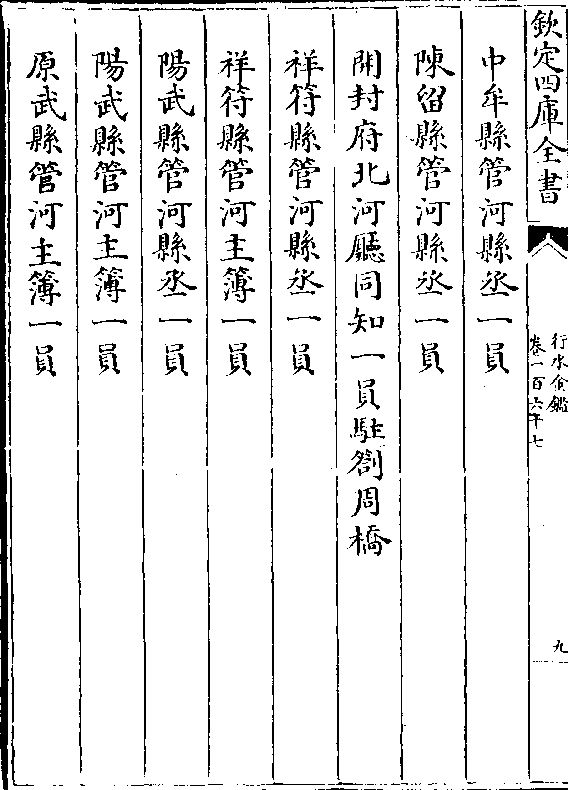 欽定四庫全書
行水金鑑
卷一百六十七
九
中牟縣管河縣丞一員
陳留縣管河縣丞一員
開封府北河廳同知一員駐劄周橋
祥符縣管河縣丞一員
祥符縣管河主簿一員
陽武縣管河縣丞一員
陽武縣管河主簿一員
原武縣管河主簿一員